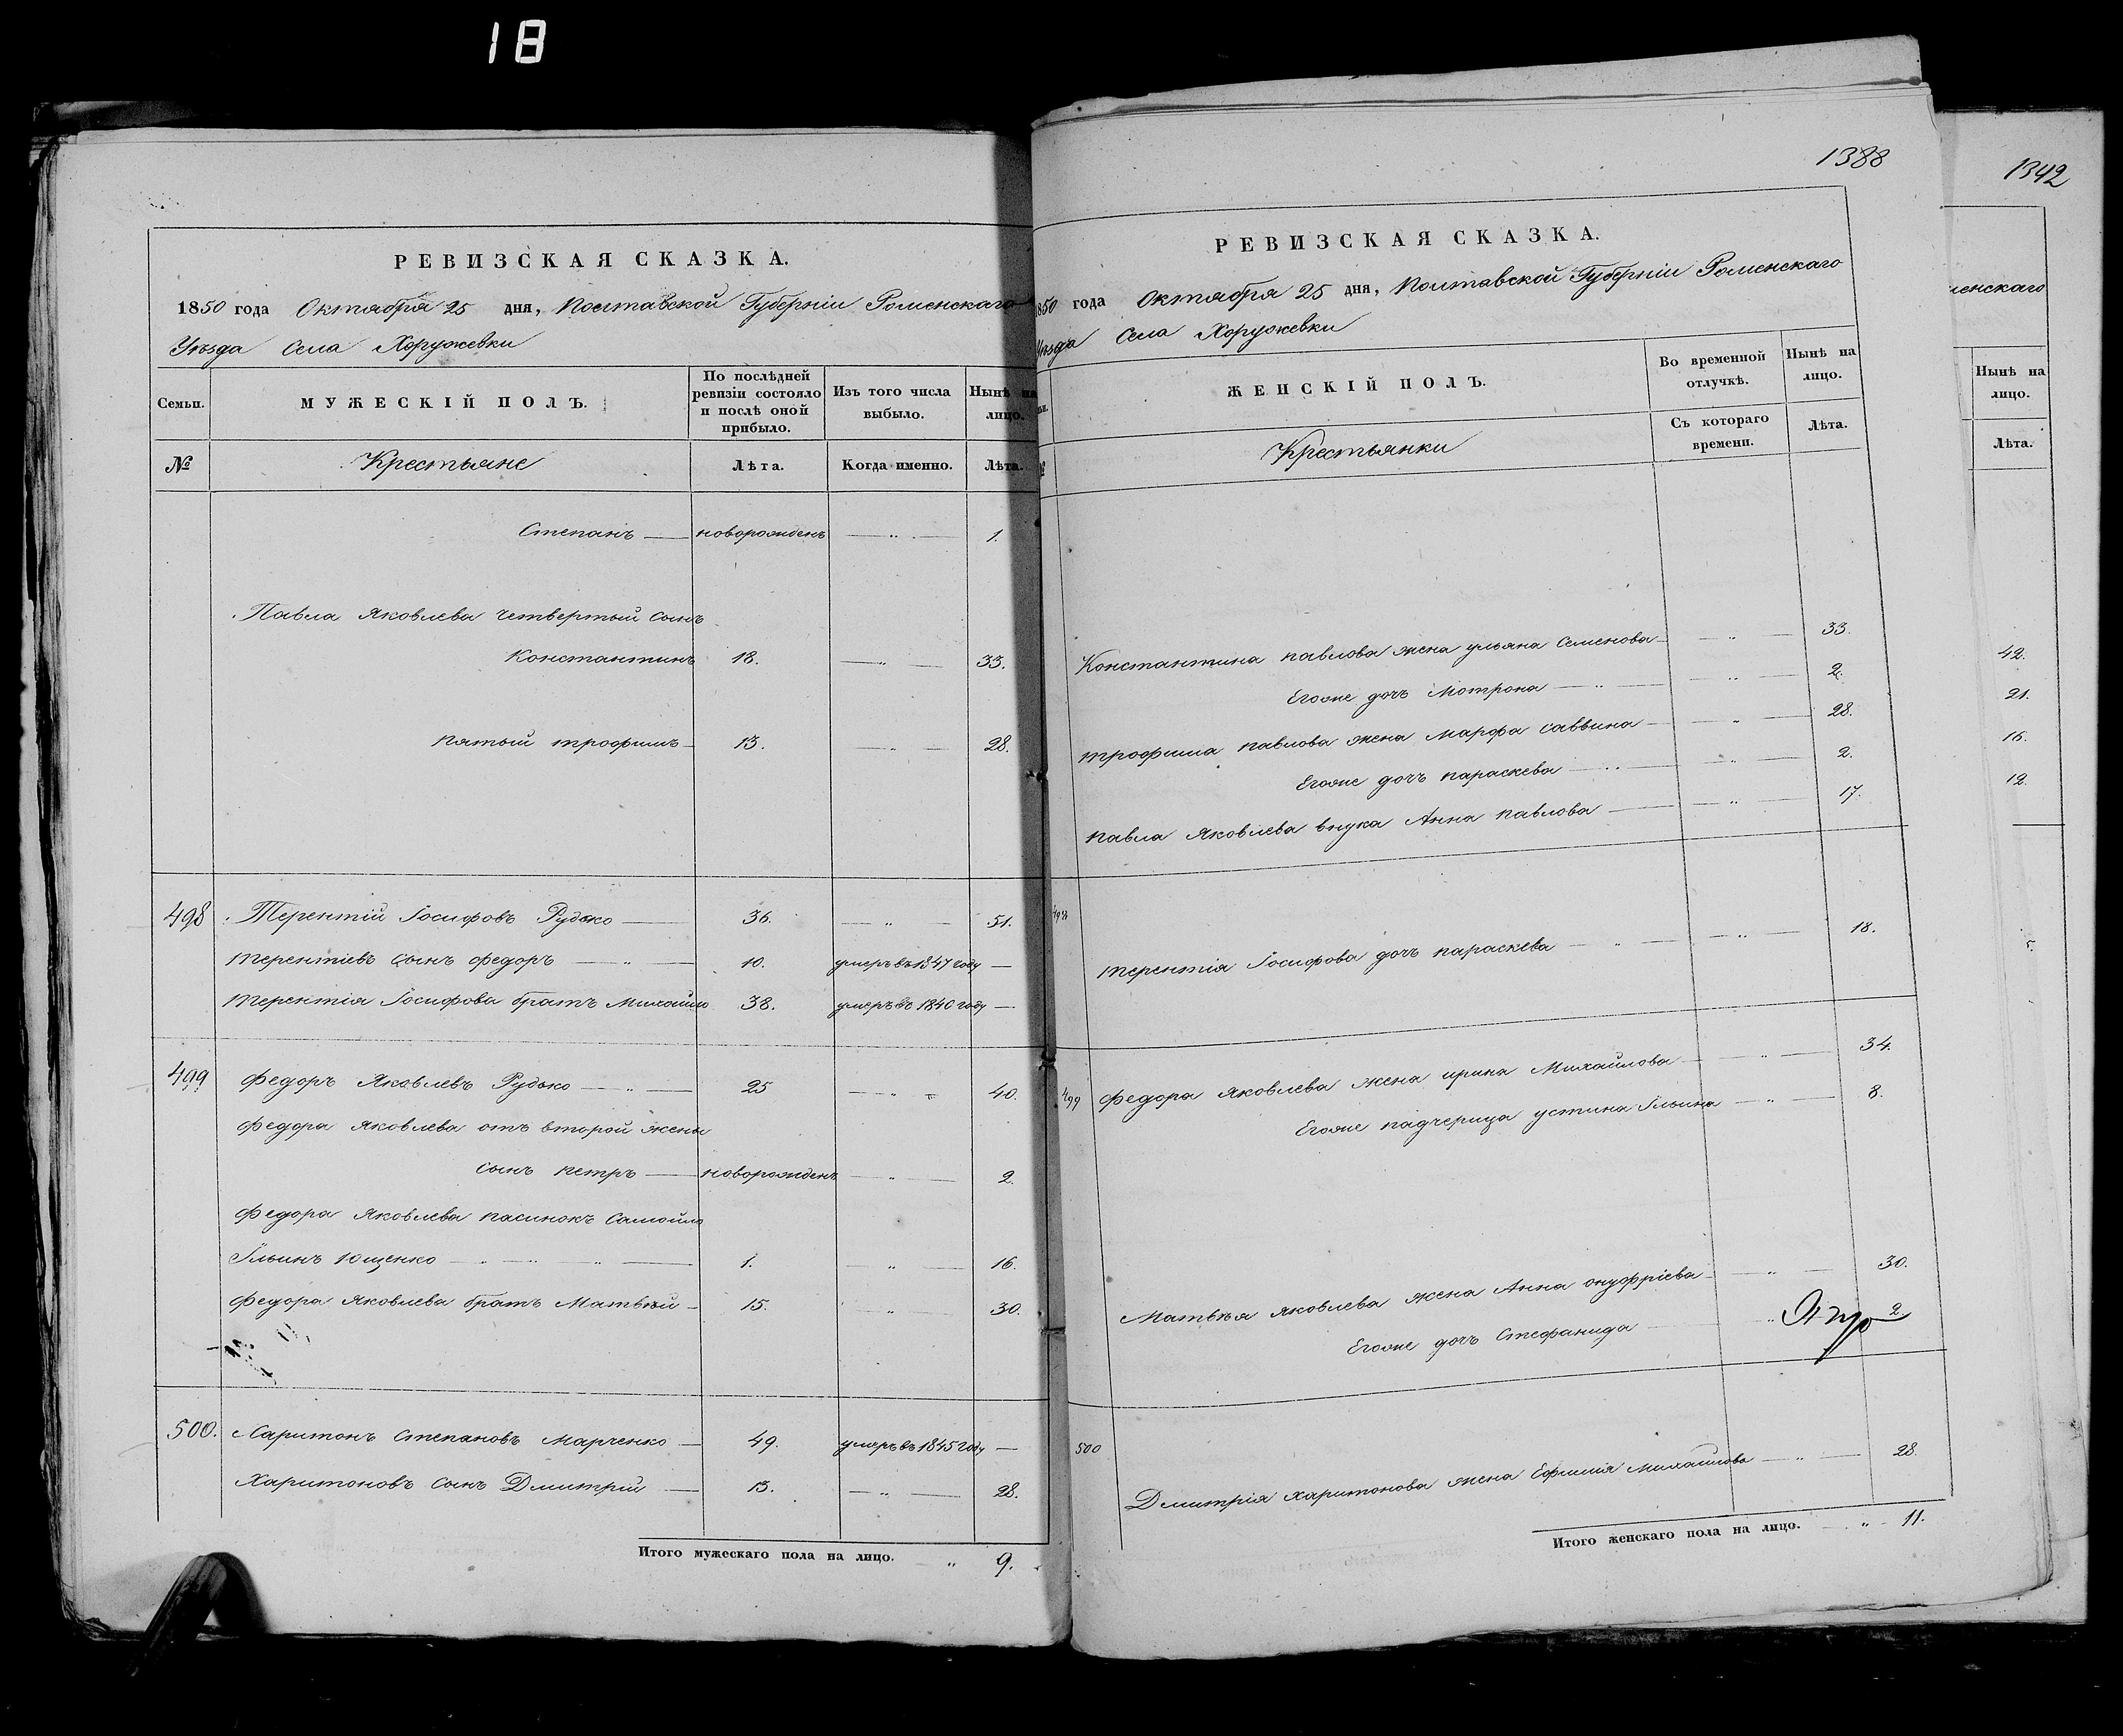 18
РЕВИЗСКАЯ СКАЗКА.
1850 года Октября 25 дня, Полтавской Губерніи Роменскаго
Уѣзда Села Хоружевки
Семьи.
МУЖЕСКІЙ ПОЛЪ.
По послѣдней ревизіи состояло и послѣ оной прибыло.
Изъ того числа выбыло.
Нынѣ на лицо.
№ Крестьяне Лѣта. Когда именно. Лѣта.
Степанъ — новорожденъ — „ — 1.
Павла Яковлева четвертый сынъ
Константинъ 18. — „ — 33.
пятый трофимъ — 13. — „ — 28.
498 Терентій Іосифовъ Рудько — 36. — „ — 51.
терентіевъ сынъ федоръ — „ — 10. умеръ въ 1847 году —
терентія Іосифова братъ Михайло 38. умеръ въ 1840 году —
499 федоръ Яковлевъ Рудько — „ — 25 — „ — 40.
федора Яковлева отъ второй жены
сынъ петръ — новорожденъ — „ — 2.
федора Яковлева пасинокъ Самойло
Ильинъ Ющенко — „ — „ — „ — 1. — „ — 16.
федора Яковлева братъ Матвѣй — 15. „ 30.
500. Харитонъ Степановъ Марченко — 49. умеръ въ 1845 году —
Харитоновъ сынъ Дмитрій — 13. — „ — 28.
Итого мужескаго пола на лицо. „ 9.
1388
РЕВИЗСКАЯ СКАЗКА.
850 года Октября 25 дня, Полтавской Губерніи Роменскаго
Уѣзда Села Хоружевки
ЖЕНСКІЙ ПОЛЪ.
Во временной отлучкѣ.
Нынѣ на лицо.
Крестьянки
Съ котораго времени.
Лѣта.
Константина павлова жена ульяна Семенова — „ — 33.
Егоже дочь Мотрона — „ — „ — 2.
трофима павлова жена марфа саввина — „ — 28.
Егоже дочь параскева — „ — „ — 2.
павла Яковлева внука Анна павлова — „ — 17.
498
терентія Іосифова дочь параскева — „ — „ — 18.
499 федора Яковлева жена ирина Михайлова — „ — 34.
Егоже падчерица устина Ильина — „ — 8.
Матвѣя Яковлева жена Анна онуфріева — „ — 30.
Егоже дочь Стефанида — „ 2
500
Дмитрія харитонова жена Ефимія михайлова — „ — 28.
Итого женскаго пола на лицо. „ 11.
1342
менскаго
Нынѣ на лицо.
Лѣта.
42.
21.
16.
12.